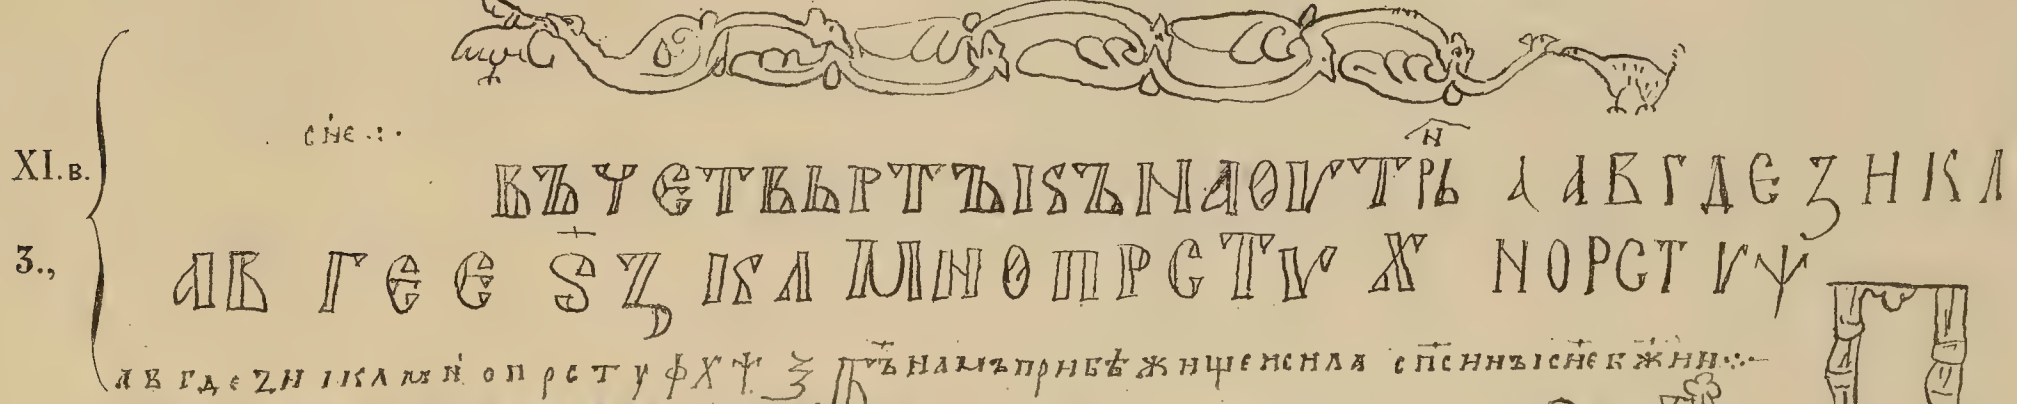 XI. в.
сн҃е
ВЪЧЕТВЬРТЪІЅЪНАОУТРЬ н А А В Г Д Е З Н І К Л
З.,
А В Г Е Е Ѕ Z І К Л М Н О П Р С Т У Х Н О Р С Т У Ѱ
а в г д е z н і к л м н о п р с т у ф х ѱ ѯ Бъ намъ прибѣжище и сила сп҃сннъі сн҃е бж҃ии